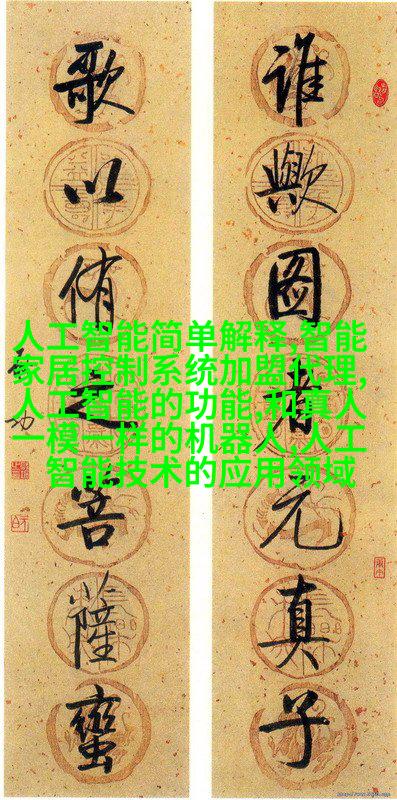 谁歟图者元真子
歌以侑之菩薩蠻
人工智能简单解释,智能
家居控制系统加盟代理,
人工智能的功能,和真人
一模一样的机器人,人工
智能技术的应用领域